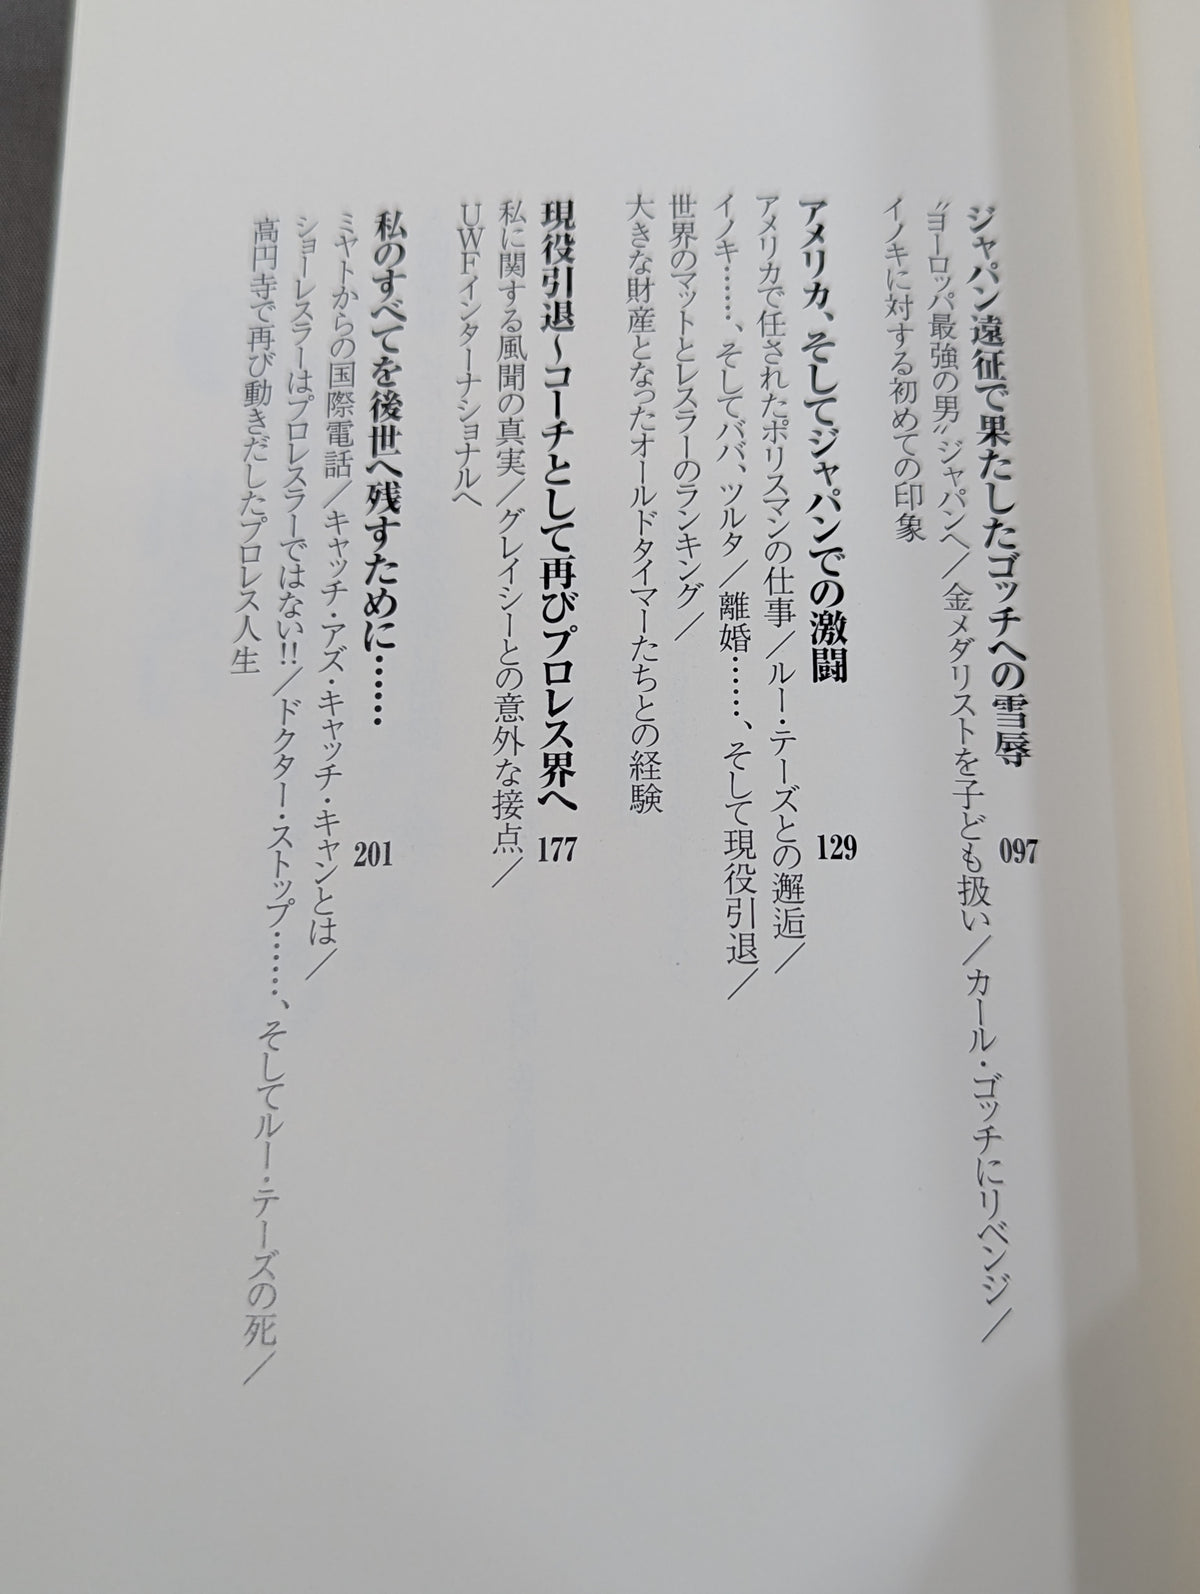 ジャパン遠征で果たしたゴッチへの雪辱 097
〝ヨーロッパ最強の男〟ジャパンへ／金メダリストを子ども扱い／カール・ゴッチにリベンジ／
イノキに対する初めての印象
アメリカ、そしてジャパンでの激闘 129
アメリカで任されたポリスマンの仕事／ルー・テーズとの邂逅／
イノキ……、そしてババ、ツルタ／離婚……、そして現役引退／
世界のマットとレスラーのランキング／
大きな財産となったオールドタイマーたちとの経験
現役引退～コーチとして再びプロレス界へ 177
私に関する風聞の真実／グレイシーとの意外な接点／
UWFインターナショナルへ
私のすべてを後世へ残すために…… 201
ミヤトからの国際電話／キャッチ・アズ・キャッチ・キャンとは／
ショーレスラーはプロレスラーではない!!／ドクター・ストップ……、そしてルー・テーズの死／
高円寺で再び動きだしたプロレス人生